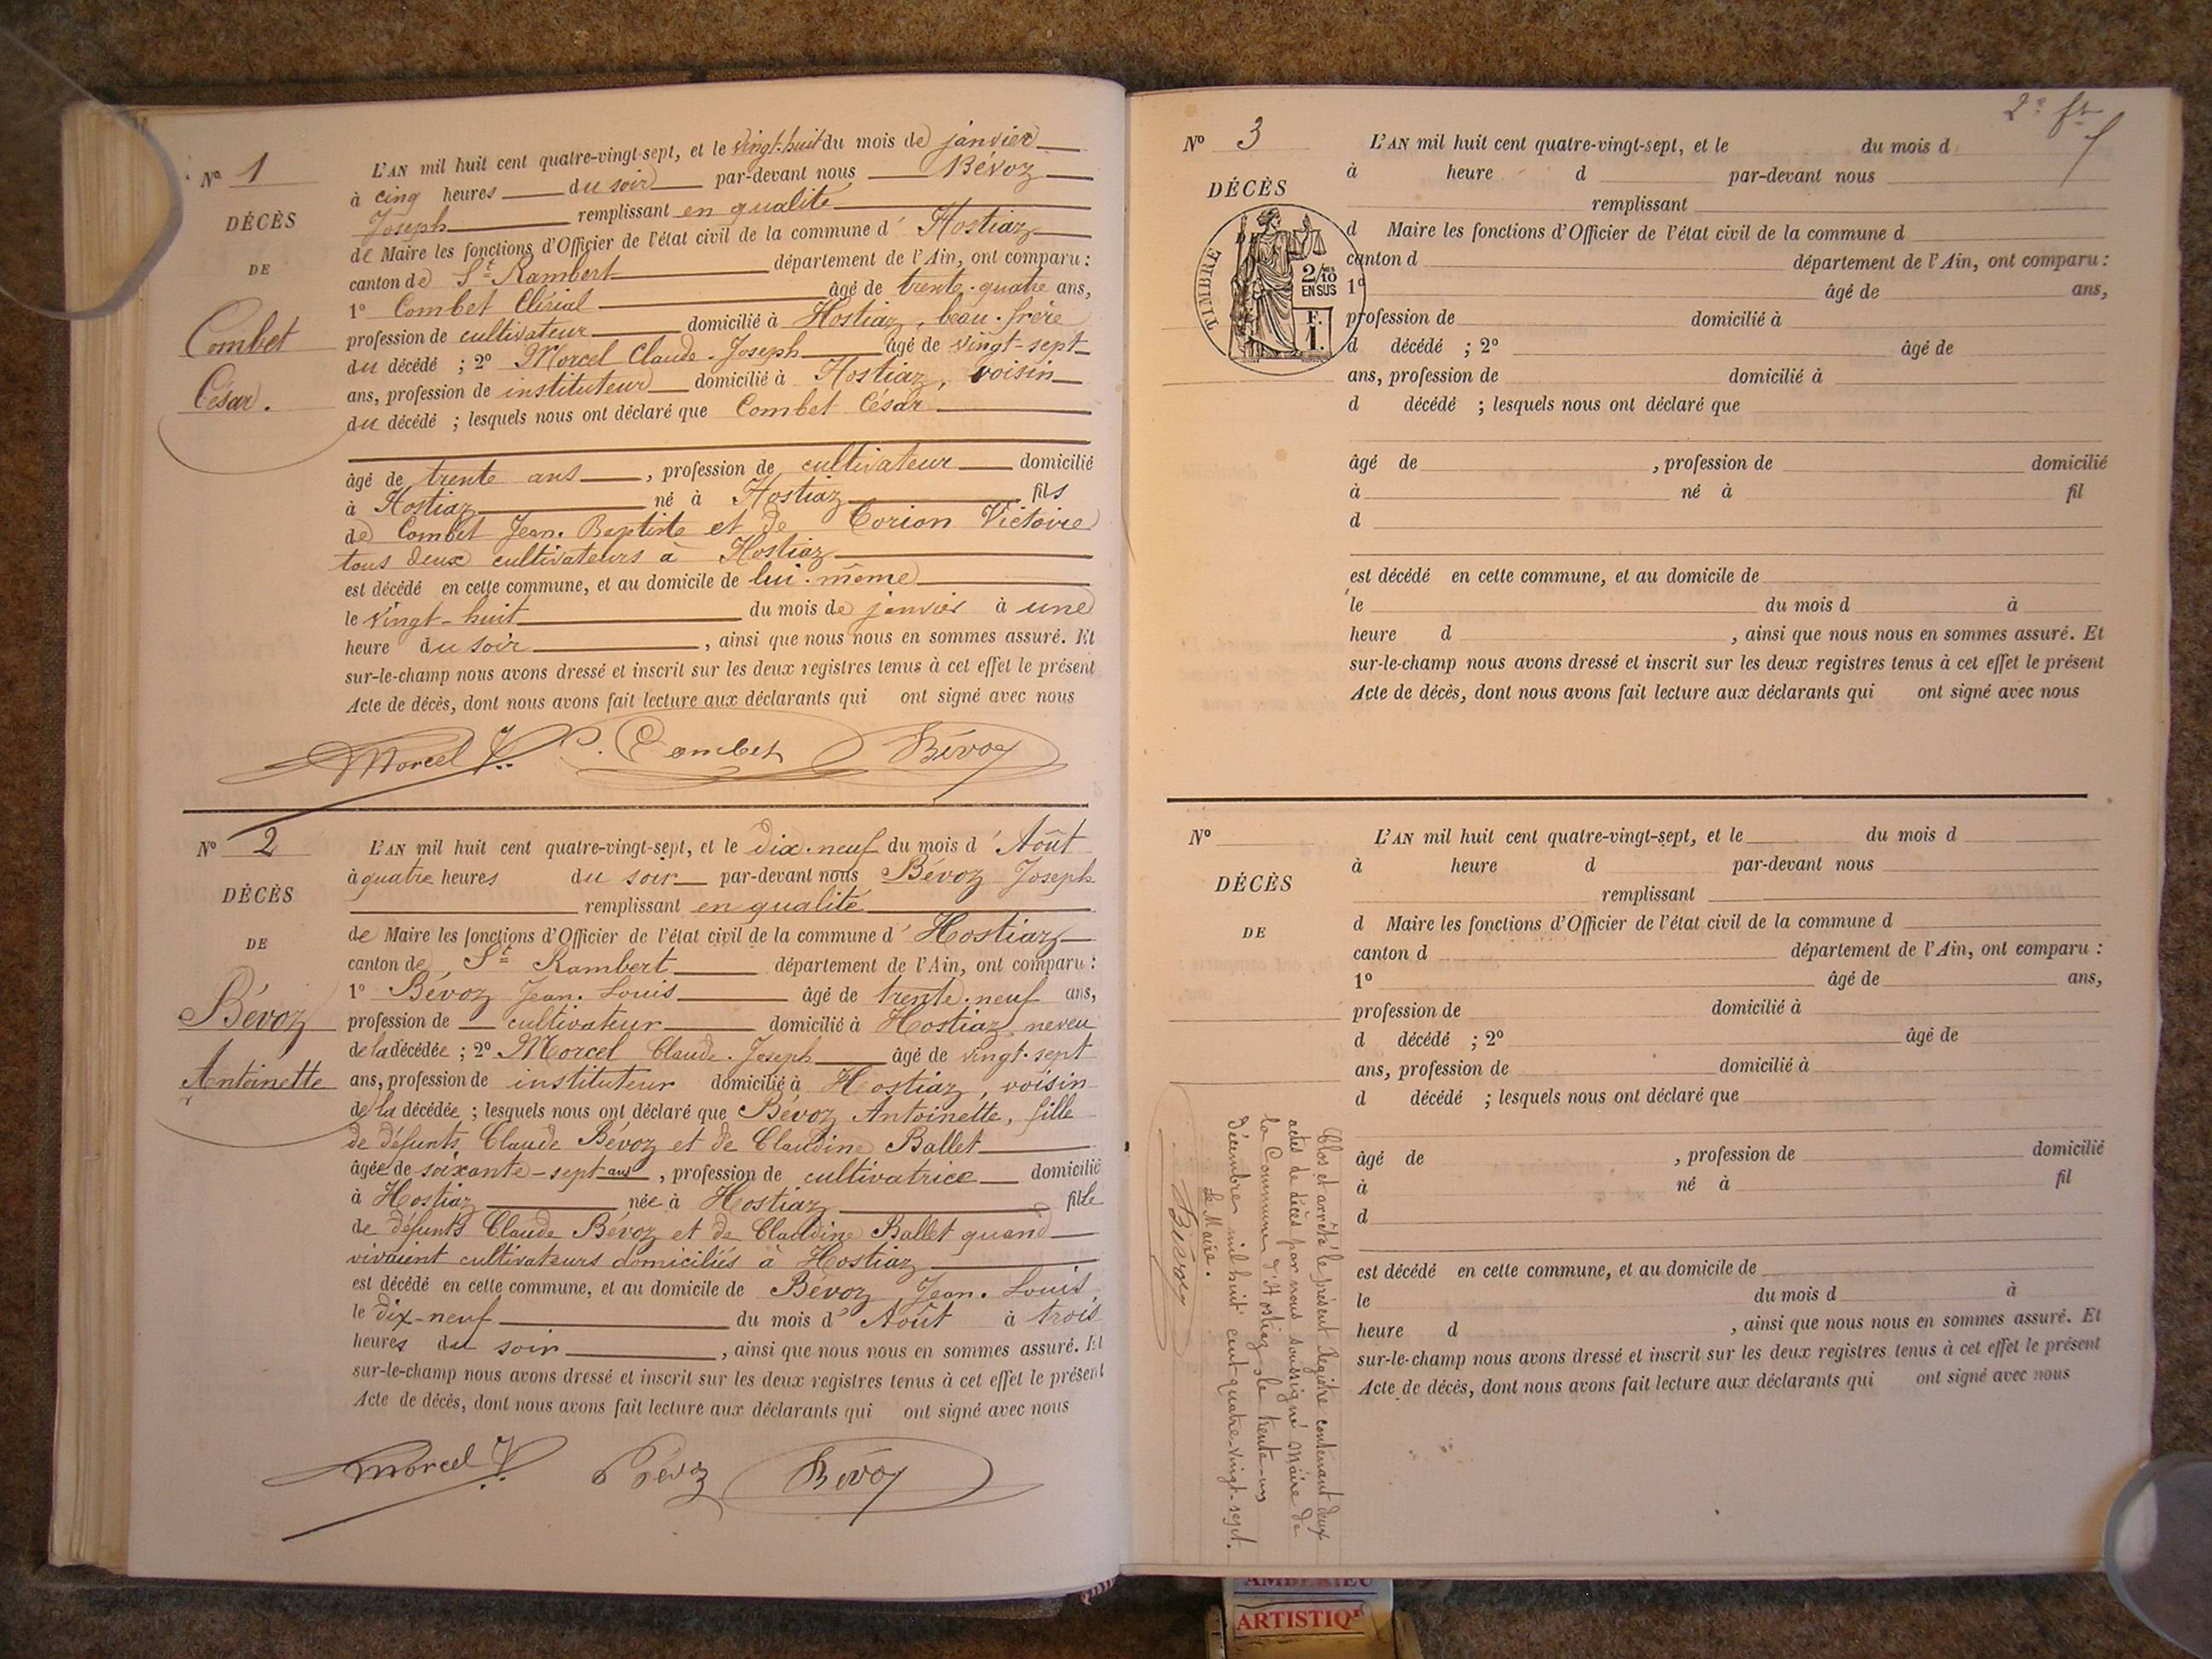 Nº 1
DÉCÈS
DE
Combet
César.
L'AN mil huit cent quatre-vingt-sept, et le vingt-huit du mois de janvier
à cinq heures du soir par-devant nous Bévoz
Joseph remplissant en qualité
de Maire les fonctions d'Officier de l'état civil de la commune d'Hostiaz
canton de St Rambert département de l'Ain, ont comparu :
1º Combet Clérial âgé de trente-quatre ans,
profession de cultivateur domicilié à Hostiaz, beau-frère
du décédé ; 2º Morcel Claude-Joseph âgé de vingt-sept
ans, profession de instituteur domicilié à Hostiaz, voisin
du décédé ; lesquels nous ont déclaré que Combet César
âgé de trente ans, profession de cultivateur domicilié
à Hostiaz né à Hostiaz fils
de Combet Jean-Baptiste et de Corion Victoire
tous deux cultivateurs à Hostiaz
est décédé en cette commune, et au domicile de lui-même
le vingt-huit du mois de janvier à une
heure du soir, ainsi que nous nous en sommes assuré. Et
sur-le-champ nous avons dressé et inscrit sur les deux registres tenus à cet effet le présent
Acte de décès, dont nous avons fait lecture aux déclarants qui ont signé avec nous
Morcel J. Combet Bévoz
Nº 2
DÉCÈS
DE
Bévoz
Antoinette
L'AN mil huit cent quatre-vingt-sept, et le dix-neuf du mois d'Août
à quatre heures du soir par-devant nous Bévoz Joseph
remplissant en qualité
de Maire les fonctions d'Officier de l'état civil de la commune d'Hostiaz
canton de St Rambert département de l'Ain, ont comparu :
1º Bévoz Jean-Louis âgé de trente-neuf ans,
profession de cultivateur domicilié à Hostiaz neveu
de la décédée ; 2º Morcel Claude-Joseph âgé de vingt-sept
ans, profession de instituteur domicilié à Hostiaz, voisin
de la décédée ; lesquels nous ont déclaré que Bévoz Antoinette, fille
de défunts Claude Bévoz et de Claudine Ballet
âgée de soixante-sept ans, profession de cultivatrice domicilié
à Hostiaz née à Hostiaz fille
de défunts Claude Bévoz et de Claudine Ballet quand
vivaient cultivateurs domiciliés à Hostiaz
est décédé en cette commune, et au domicile de Bévoz Jean-Louis,
le dix-neuf du mois d'Août à trois
heures du soir, ainsi que nous nous en sommes assuré. Et
sur-le-champ nous avons dressé et inscrit sur les deux registres tenus à cet effet le présent
Acte de décès, dont nous avons fait lecture aux déclarants qui ont signé avec nous
Morcel J. Bévoz Bévoz
2e ft
Nº 3
DÉCÈS
DE
TIMBRE
2/10
EN SUS
F.
1.
L'AN mil huit cent quatre-vingt-sept, et le du mois d
à heure d par-devant nous
remplissant
d Maire les fonctions d'Officier de l'état civil de la commune d
canton d département de l'Ain, ont comparu :
1º âgé de ans,
profession de domicilié à
d décédé ; 2º âgé de
ans, profession de domicilié à
d décédé ; lesquels nous ont déclaré que
âgé de , profession de domicilié
à né à fil
d
est décédé en cette commune, et au domicile de
le du mois d à
heure d , ainsi que nous nous en sommes assuré. Et
sur-le-champ nous avons dressé et inscrit sur les deux registres tenus à cet effet le présent
Acte de décès, dont nous avons fait lecture aux déclarants qui ont signé avec nous
Nº
DÉCÈS
DE
L'AN mil huit cent quatre-vingt-sept, et le du mois d
à heure d par-devant nous
remplissant
d Maire les fonctions d'Officier de l'état civil de la commune d
canton d département de l'Ain, ont comparu :
1º âgé de ans,
profession de domicilié à
d décédé ; 2º âgé de
ans, profession de domicilié à
d décédé ; lesquels nous ont déclaré que
âgé de , profession de domicilié
à né à fil
d
est décédé en cette commune, et au domicile de
le du mois d à
heure d , ainsi que nous nous en sommes assuré. Et
sur-le-champ nous avons dressé et inscrit sur les deux registres tenus à cet effet le présent
Acte de décès, dont nous avons fait lecture aux déclarants qui ont signé avec nous
Clos et arrêté le présent registre contenant deux
actes de décès par nous soussigné Maire de
la Commune d'Hostiaz le trente-un
décembre mil huit cent quatre-vingt-sept.
Le Maire.
Bévoz
AMBERIEU
ARTISTIQ